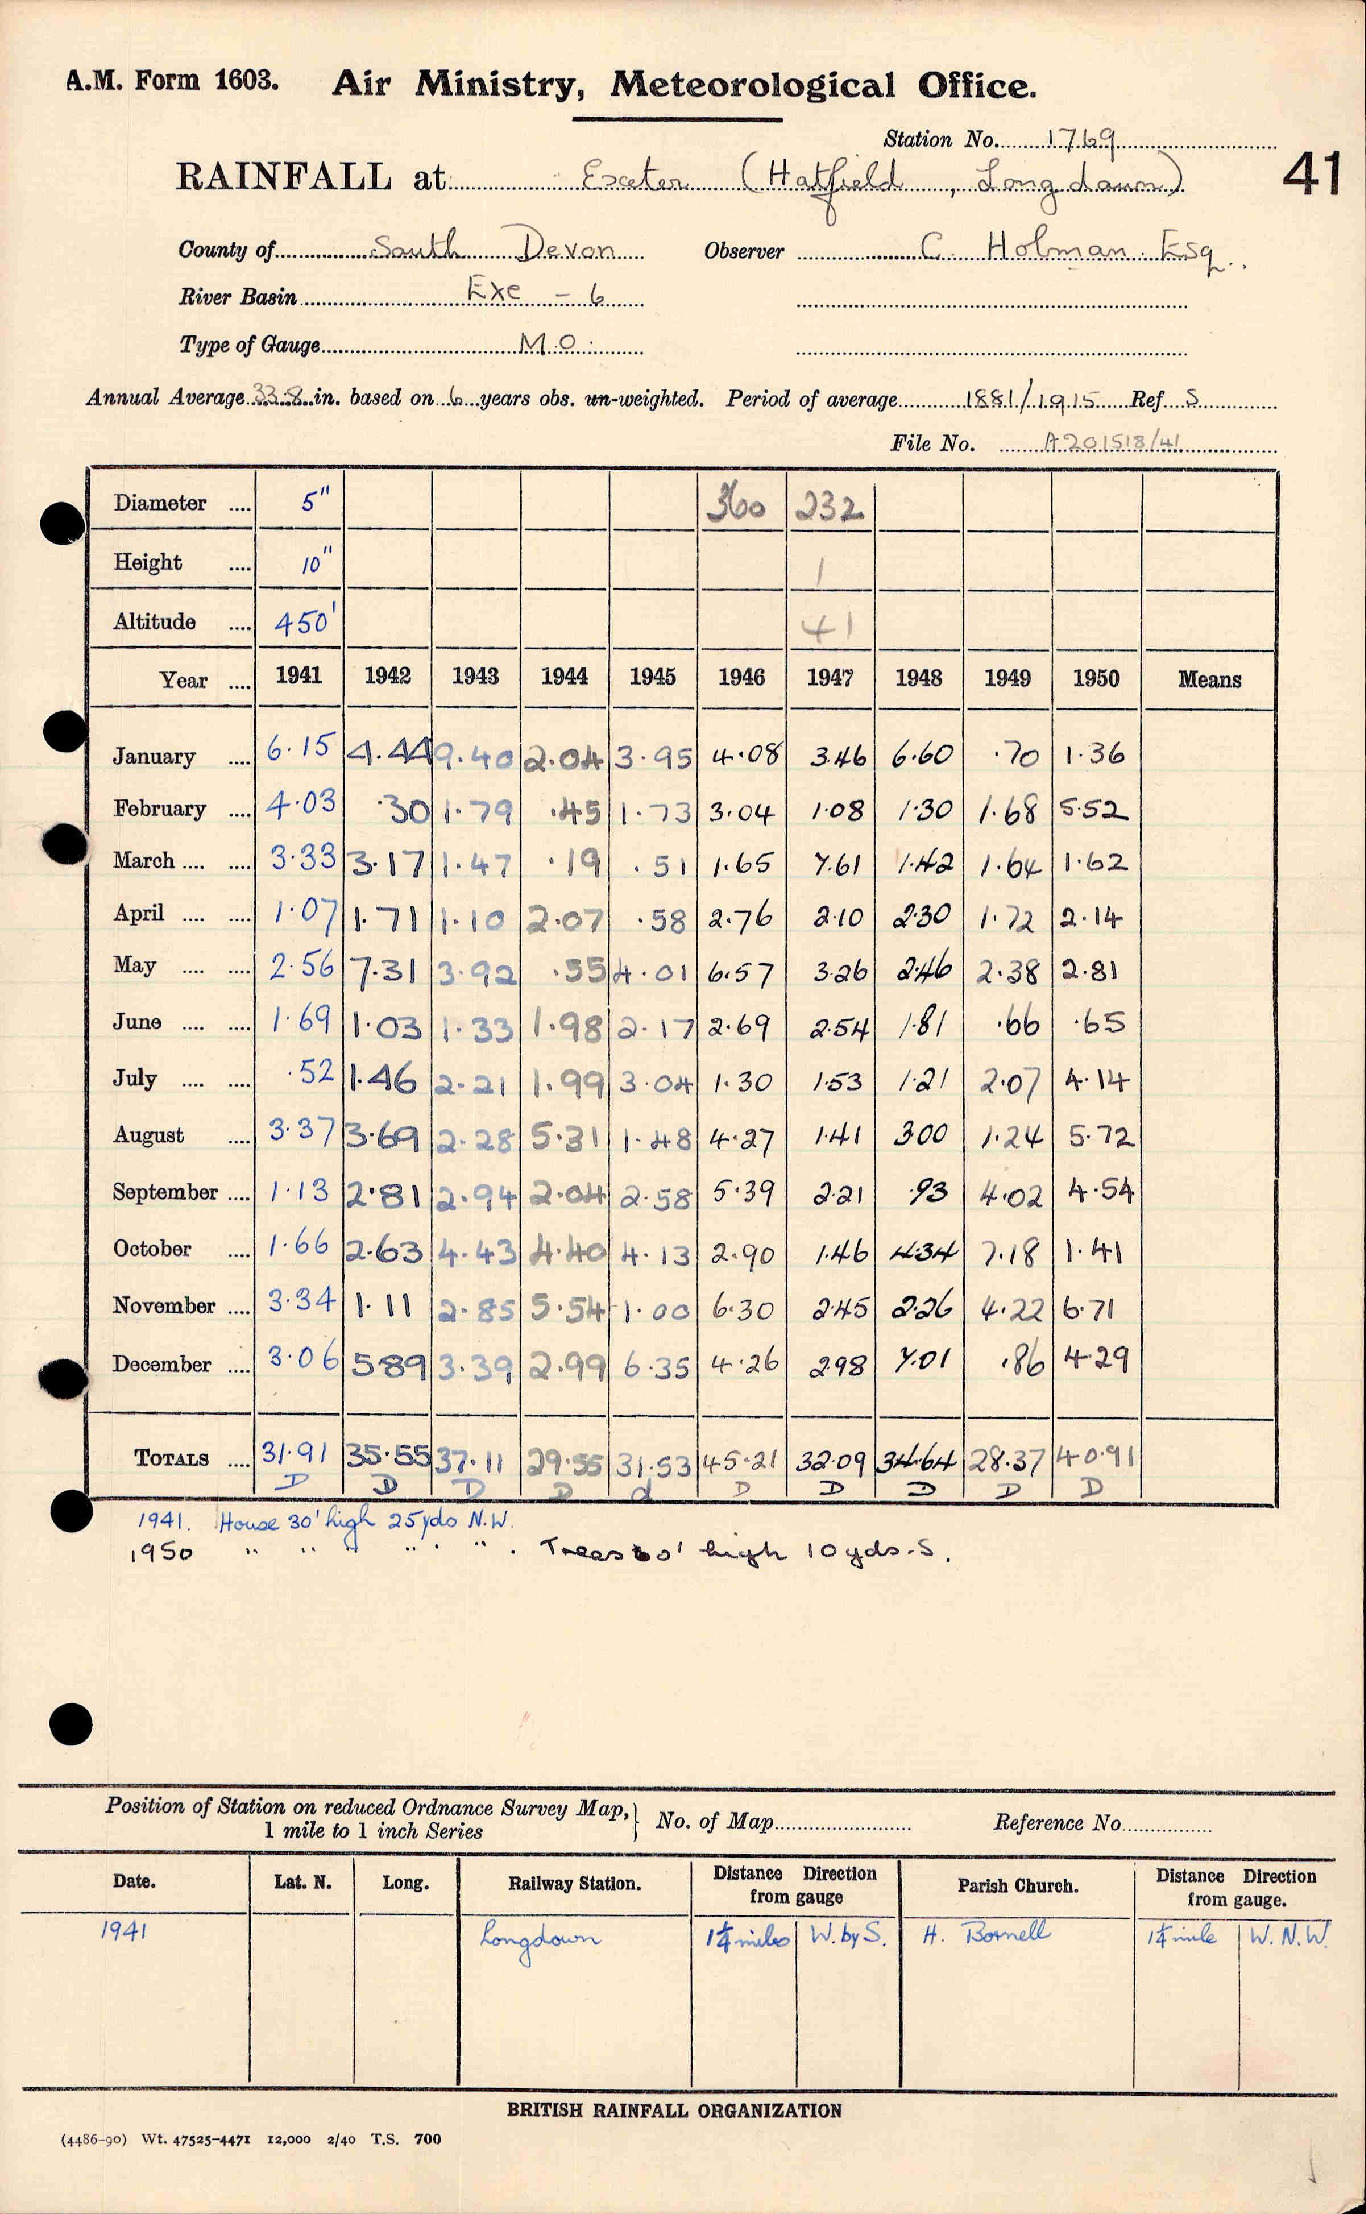 A.M. Form 1603. Air Ministry, Meteorological Office.
Station No. 1769
RAINFALL at Exeter (Hatfield, Longdown) 41
County of South Devon Observer C. Holman Esq.
River Basin Exe - 6
Type of Gauge M.O.
Annual Average 33.8 in. based on 6 years obs. un-weighted. Period of average 1881/1915 Ref. S
File No. A201518/41
Diameter .... 5" 360 232
Height .... 10" 1
Altitude .... 450' 41
Year .... 1941 1942 1943 1944 1945 1946 1947 1948 1949 1950 Means
January .... 6.15 4.44 9.40 2.04 3.95 4.08 3.46 6.60 .70 1.36
February .... 4.03 .30 1.79 .45 1.73 3.04 1.08 1.30 1.68 5.52
March .... .... 3.33 3.17 1.47 .19 .51 1.65 7.61 1.42 1.64 1.62
April .... .... 1.07 1.71 1.10 2.07 .58 2.76 2.10 2.30 1.72 2.14
May .... .... 2.56 7.31 3.92 .55 4.01 6.57 3.26 2.46 2.38 2.81
June .... .... 1.69 1.03 1.33 1.98 2.17 2.69 2.54 1.81 .66 .65
July .... .... .52 1.46 2.21 1.99 3.04 1.30 1.53 1.21 2.07 4.14
August .... 3.37 3.69 2.28 5.31 1.48 4.27 1.41 3.00 1.24 5.72
September .... 1.13 2.81 2.94 2.04 2.58 5.39 2.21 .93 4.02 4.54
October .... 1.66 2.63 4.43 4.40 4.13 2.90 1.46 4.34 7.18 1.41
November .... 3.34 1.11 2.85 5.54 1.00 6.30 2.45 2.26 4.22 6.71
December .... 3.06 5.89 3.39 2.99 6.35 4.26 2.98 7.01 .86 4.29
TOTALS .... 31.91 35.55 37.11 29.55 31.53 45.21 32.09 34.64 28.37 40.91
D D D D d D D D D D
1941. House 30' high 25yds N.W.
1950 " " " " " . Trees high 10yds. S.
Position of Station on reduced Ordnance Survey Map, } No. of Map Reference No.
1 mile to 1 inch Series
Date. Lat. N. Long. Railway Station. Distance Direction from gauge Parish Church. Distance Direction from gauge.
1941 Longdown 1¼ miles W. by S. H. 1¼ mile W. N. W.
BRITISH RAINFALL ORGANIZATION
(4486-90) Wt. 47525-4471 12,000 2/40 T.S. 700